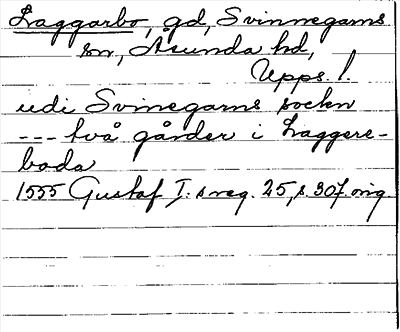 Laggarbo, gd, Svinnegarns
sn, Åsunda hd,
Upps. l.
udi Svinegarns sockn
--- två gårder i Laggere-
boda
1555 Gustaf I:s reg. 25, s. 307. orig.